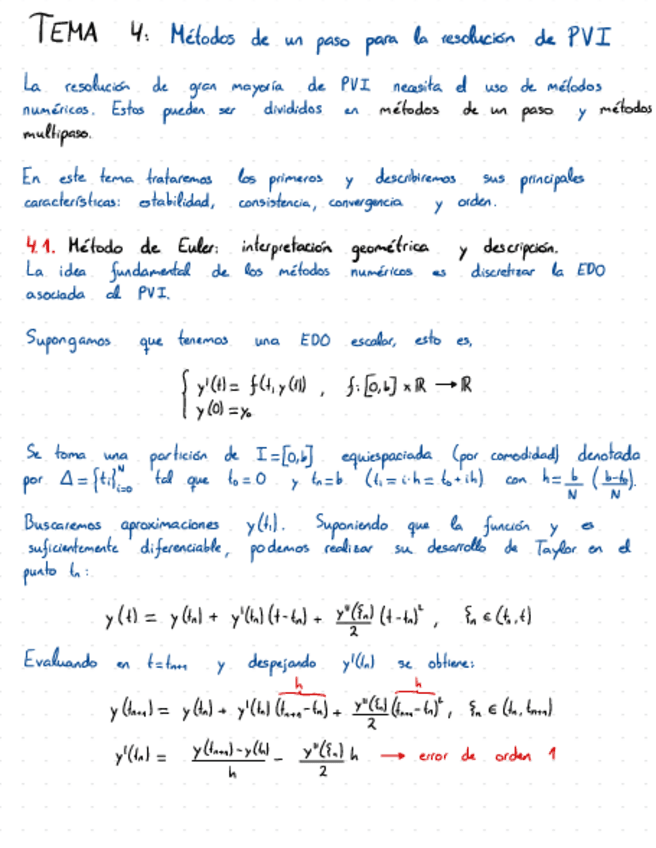 TEMA 4: Métodos de un paso para la resolución de PVI
La resolución de gran mayoría de PVI necesita el uso de métodos
numéricos. Estos pueden ser divididos en métodos de un paso y métodos
multipaso.
En este tema trataremos los primeros y describiremos sus principales
características: estabilidad, consistencia, convergencia y orden.
4.1. Método de Euler: interpretación geométrica y descripción.
La idea fundamental de los métodos numéricos es discretizar la EDO
asociada al PVI.
Supongamos que tenemos una EDO escalar, esto es,
{ y'(t) = f(t, y(t)) , f: [0,b] × ℝ → ℝ
y(0) = y₀
Se toma una partición de I=[0,b] equiespaciada (por comodidad) denotada
por Δ = {tᵢ}ᵢ₌₀ᴺ tal que t₀ = 0 y tₙ = b (tᵢ = i·h = t₀ + ih) con h = b/N ((b-t₀)/N).
Buscaremos aproximaciones y(tᵢ). Suponiendo que la función y es
suficientemente diferenciable, podemos realizar su desarrollo de Taylor en el
punto tₙ:
y(t) = y(tₙ) + y'(tₙ)(t-tₙ) + y''(ξₙ)/2 (t-tₙ)² , ξₙ ∈ (tₙ, t)
Evaluando en t=tₙ₊₁ y despejando y'(tₙ) se obtiene:
h h
y(tₙ₊₁) = y(tₙ) + y'(tₙ)(tₙ₊₁-tₙ) + y''(ξₙ)/2 (tₙ₊₁-tₙ)² , ξₙ ∈ (tₙ, tₙ₊₁)
y'(tₙ) = (y(tₙ₊₁)-y(tₙ))/h - y''(ξₙ)/2 h → error de orden 1